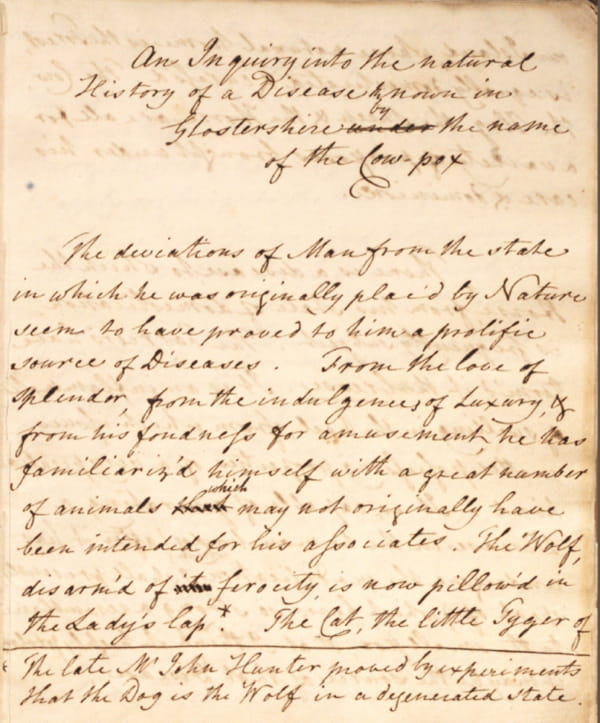 An Inquiry into the natural
History of a Disease known in
by
Glostershire under the name
of the Cow-pox
The deviations of Man from the state
in which he was originally plac'd by Nature
seem to have proved to him a prolific
source of Diseases. From the love of
splendor, from the indulgences of Luxury, &
from his fondness for amusement, he has
familiariz'd himself with a great number
which
of animals may not originally have
been intended for his associates. The Wolf,
disarm'd of ferocity, is now pillow'd in
the Lady's lap*. The Cat, the little Tyger of
* The late Mr John Hunter proved by experiments
that the Dog is the Wolf in a degenerated state.